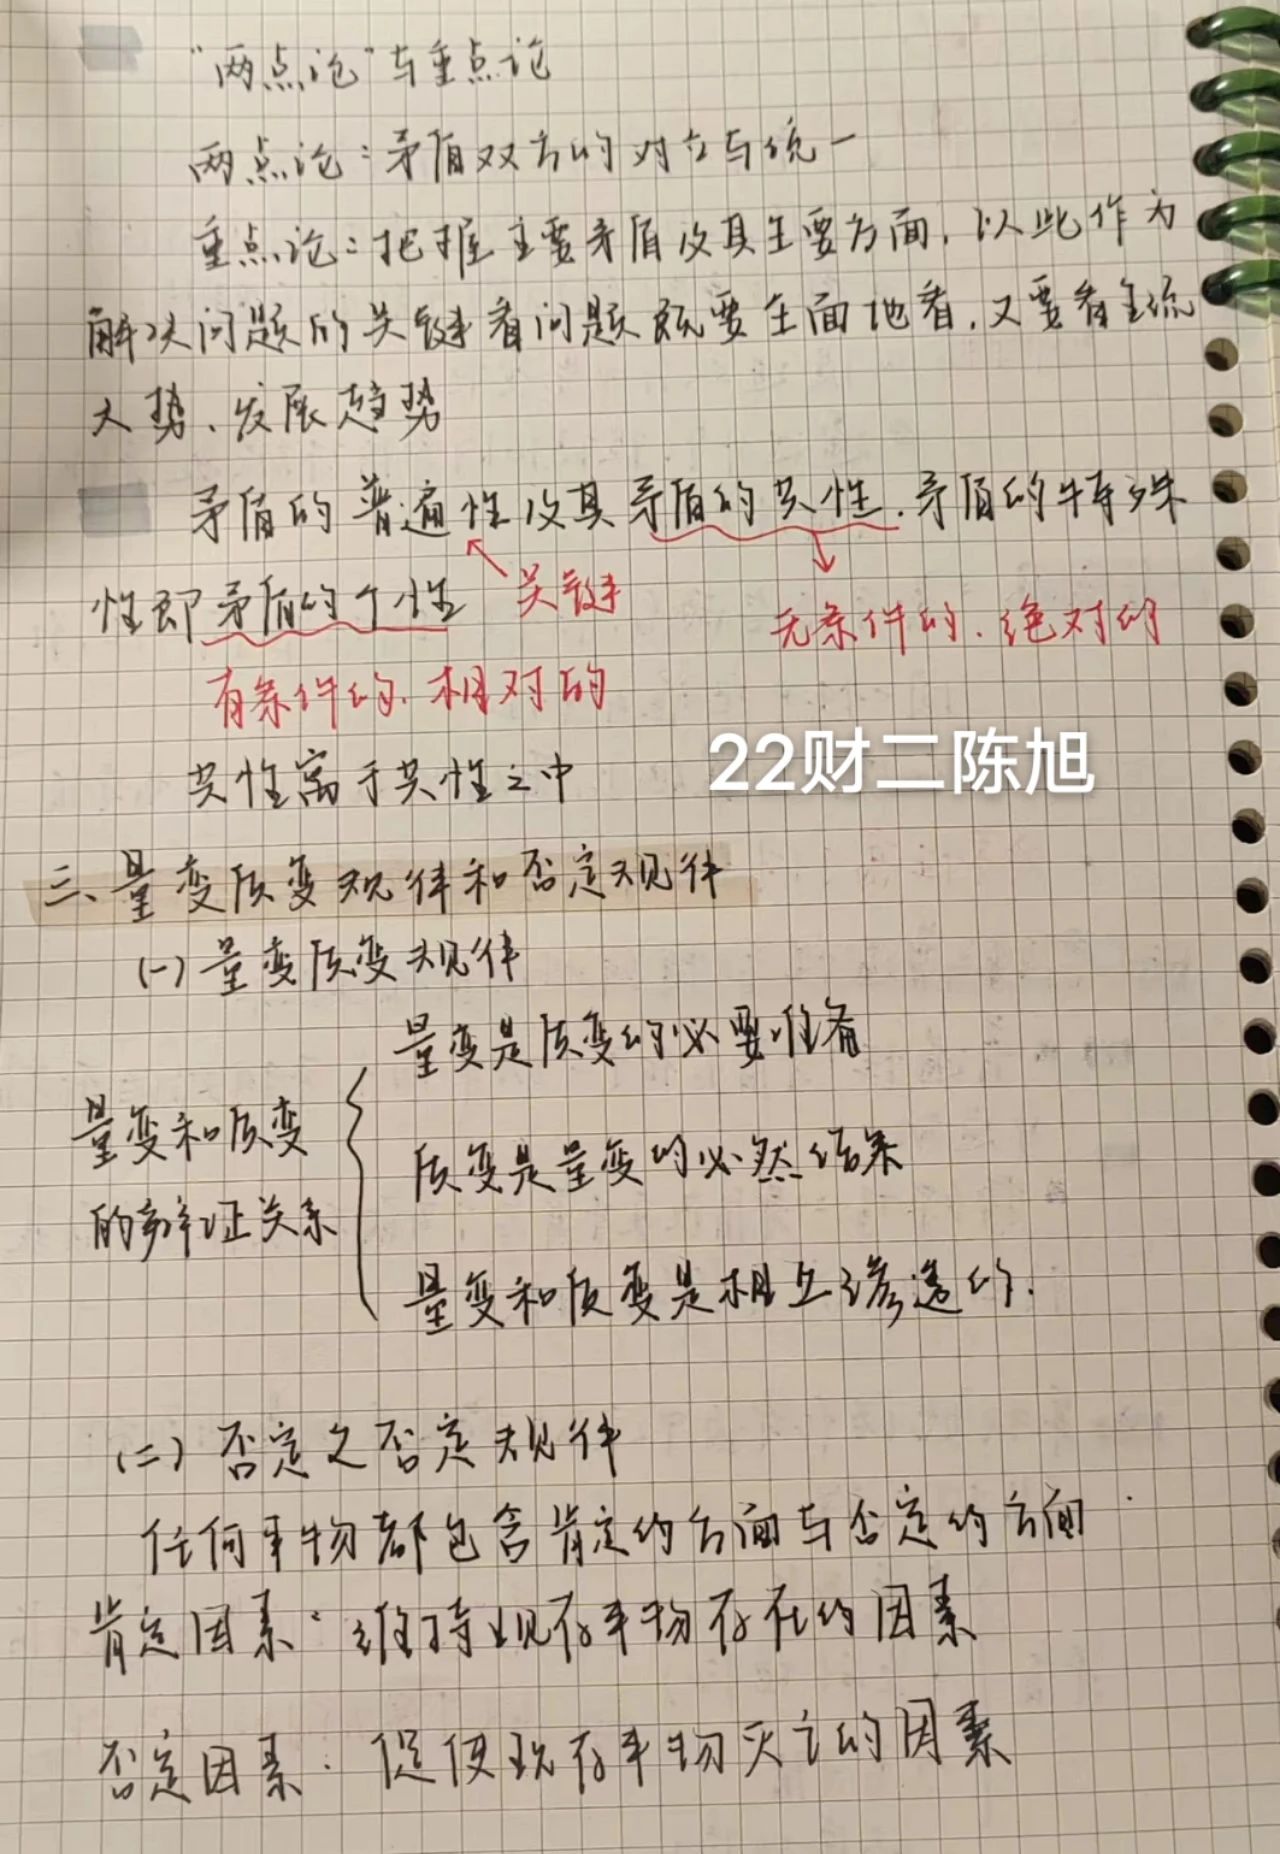 "两点论"与重点论
两点论：矛盾双方的对立与统一
重点论：把握主要矛盾及其主要方面，以此作为
解决问题的关键看问题既要全面地看，又要看主流
大势、发展趋势
矛盾的普遍性及其矛盾的共性，矛盾的特殊
性即矛盾的个性
关键
无条件的、绝对的
有条件的、相对的
共性寓于共性之中
22财二陈旭
三、量变质变规律和否定规律
(一)量变质变规律
量变是质变的必要准备
量变和质变
的辩证关系
质变是量变的必然结果
量变和质变是相互渗透的.
(二)否定之否定规律
任何事物都包含肯定的方面与否定的方面
肯定因素：维持现存事物存在的因素
否定因素：促使现存事物灭亡的因素